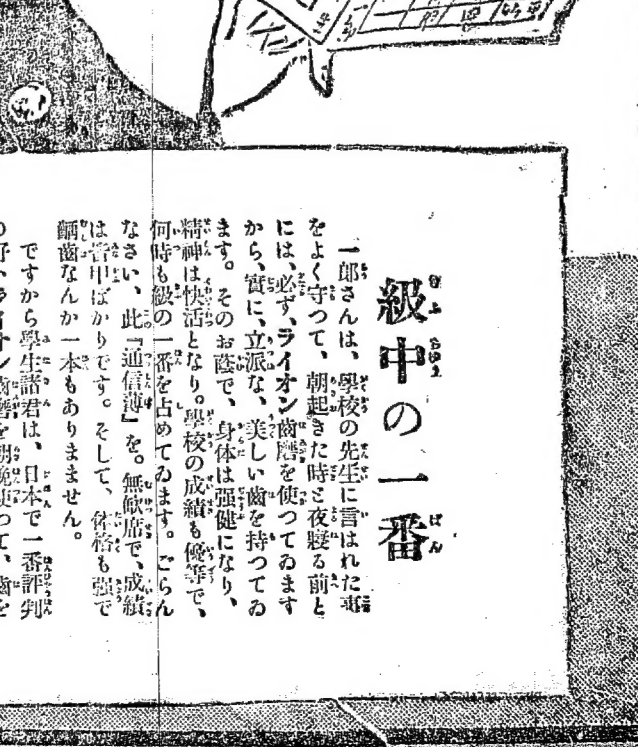 級中の一番
一郎さんは、學校の先生に言はれた事
をよく守つて、朝起きた時と夜寢る前と
には、必ず、ライオン齒磨を使つてゐます
から、實に、立派な、美しい齒を持つてゐ
ます。そのお蔭で、身体は强健になり、
精神は快活となり。學校の成績も優等で、
何時も級の一番を占めてゐます。ごらん
なさい、此『通信簿』を。無缺席で、成績
は皆甲ばかりです。そして、体格も强で
齲齒なんか一本もありません。
ですから學生諸君は、日本で一番評判
の好いライオン齒磨を朝晩使つて、齒を